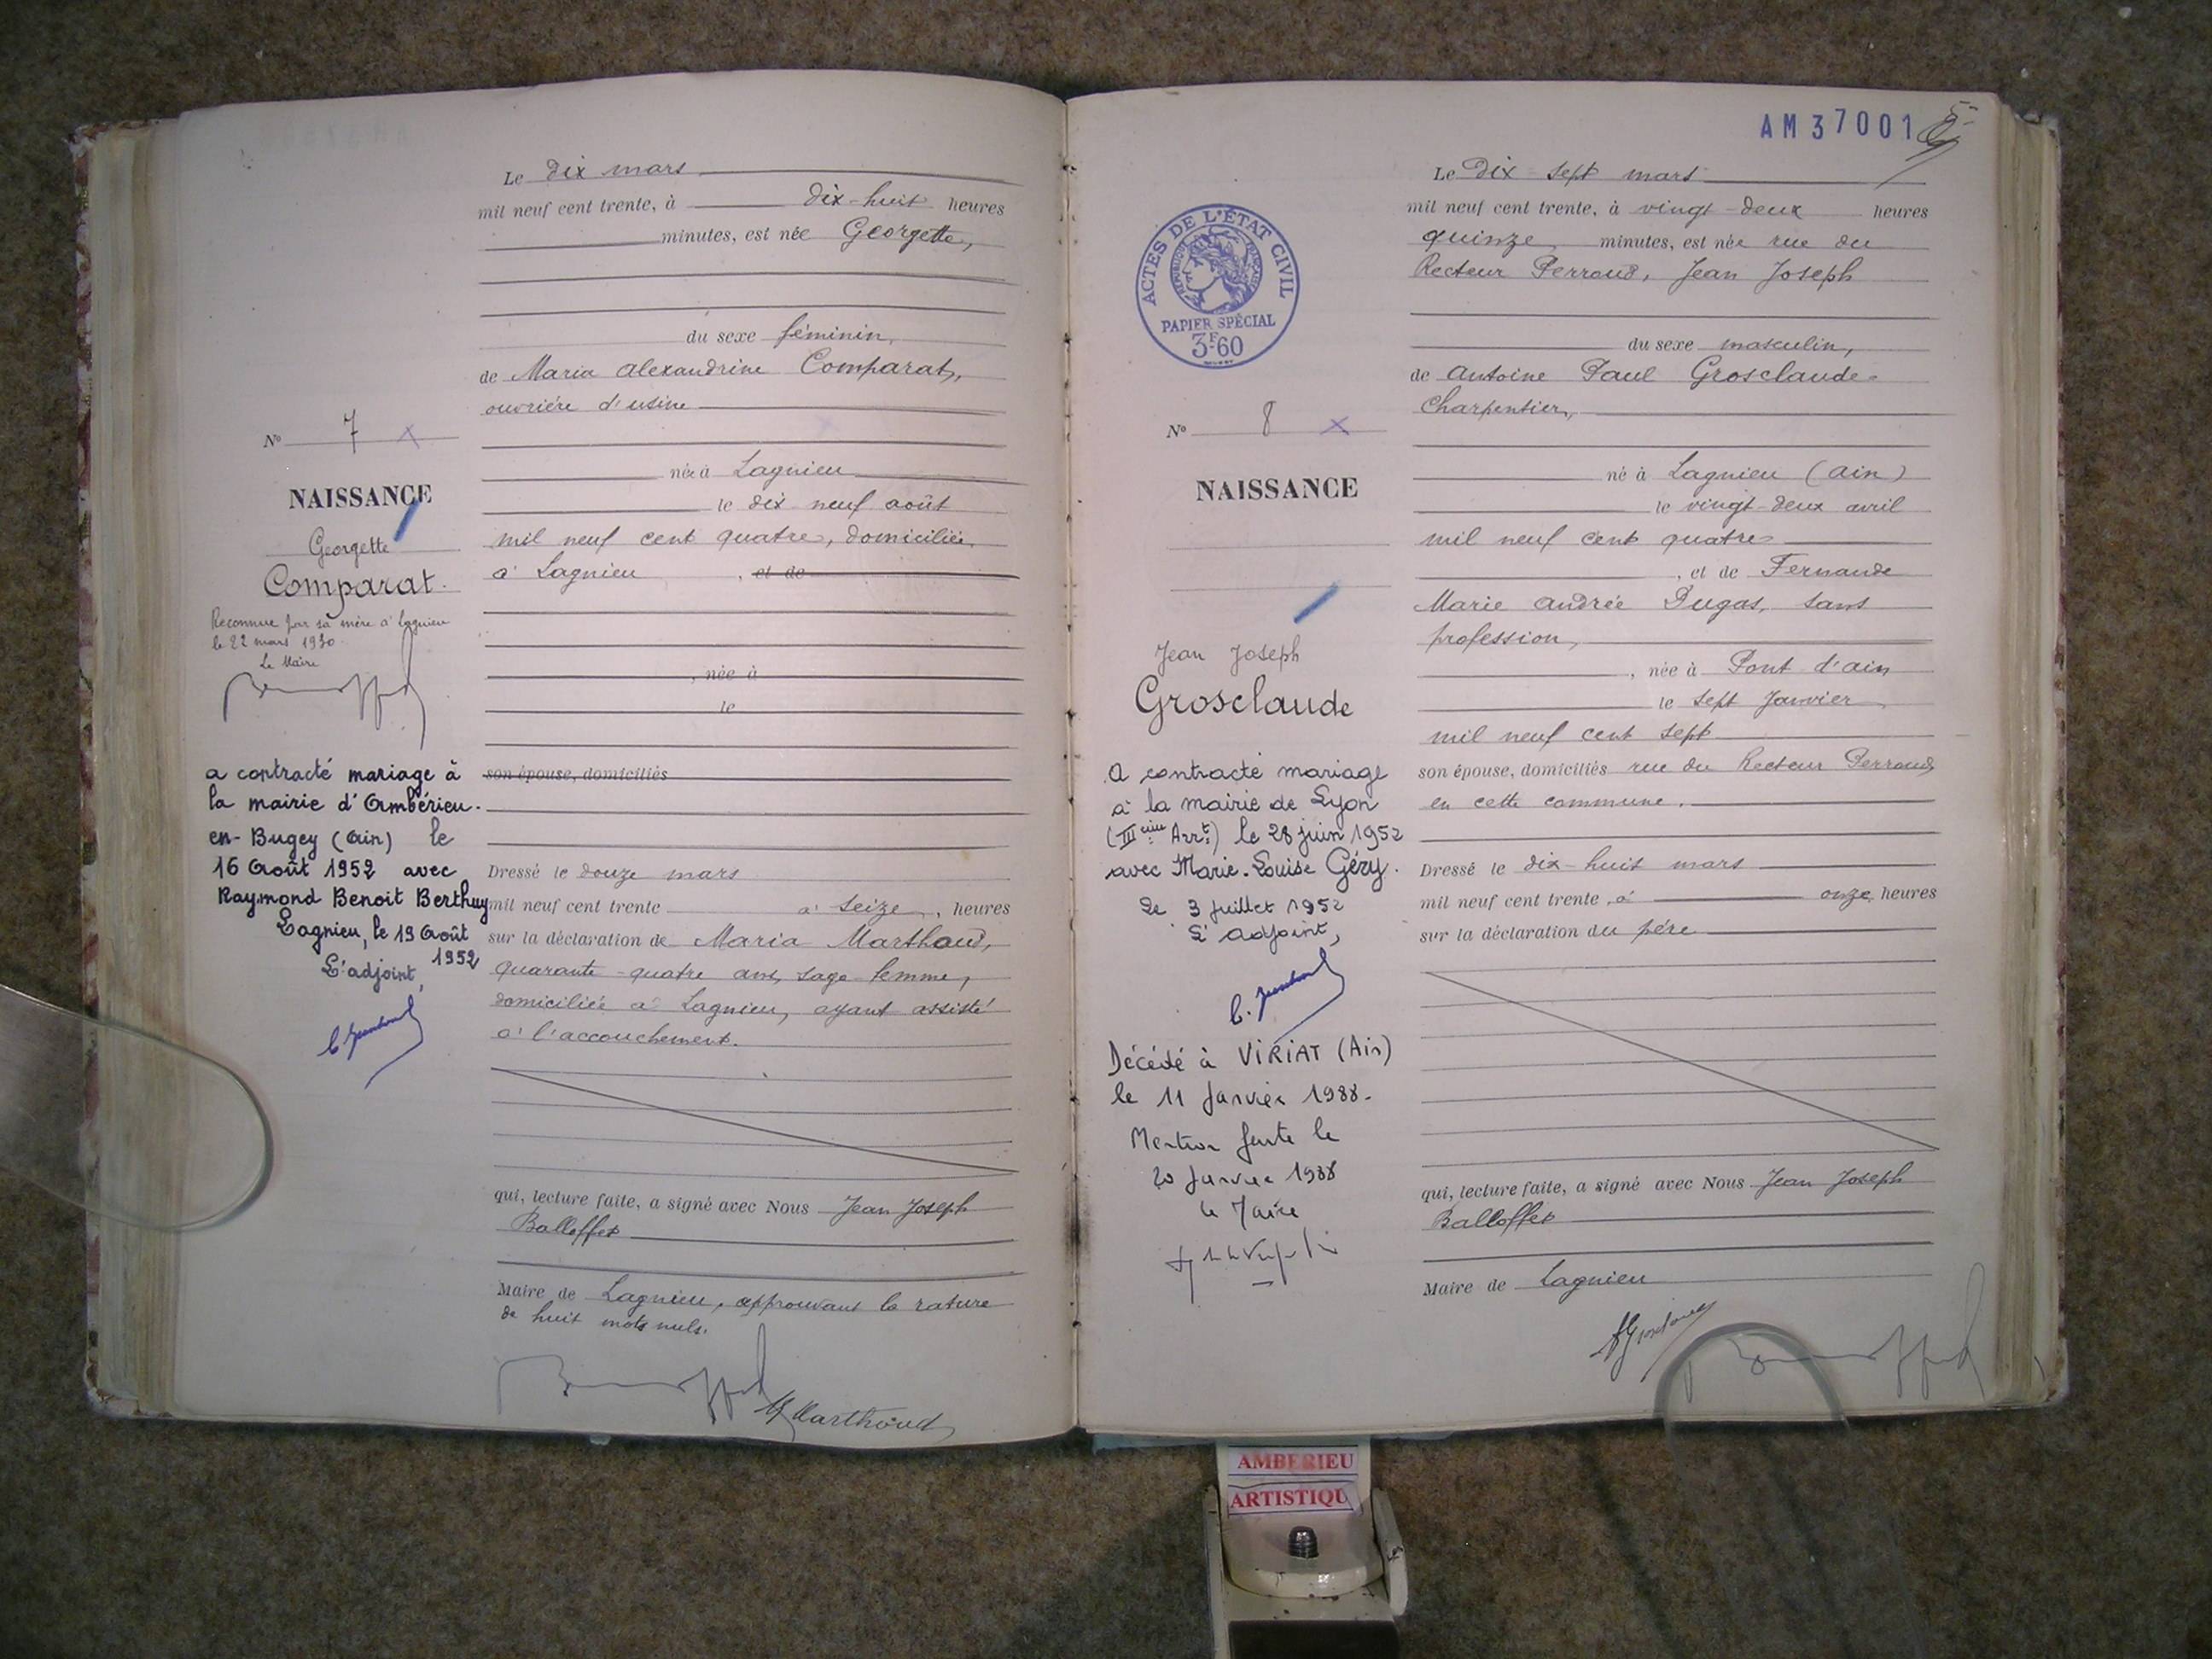 Le Dix mars
mil neuf cent trente, à Dix-huit heures
minutes, est née Georgette,
du sexe féminin,
de Maria Alexandrine Comparat,
ouvrière d'usine
née à Lagnieu
le dix neuf août
mil neuf cent quatre, domiciliée
à Lagnieu, et de
, née à
le
son épouse, domiciliés
Dressé le douze mars
mil neuf cent trente à seize, heures
sur la déclaration de Maria Marthoud,
quarante-quatre ans, sage-femme,
domiciliée à Lagnieu, ayant assisté
à l'accouchement.
qui, lecture faite, a signé avec Nous Jean Joseph
Balloffet
Maire de Lagnieu, approuvant la rature
de huit mots nuls.
M Marthoud
N° 7
NAISSANCE
Georgette
Comparat.
Reconnue par sa mère à Lagnieu
le 22 mars 1930
Le Maire
a contracté mariage à
la mairie d'Ambérieu-
en-Bugey (Ain) le
16 Août 1952 avec
Raymond Benoit Berthuy
Lagnieu, le 19 Août
1952
L'adjoint,
AM 37001
Le Dix-sept mars
mil neuf cent trente, à vingt-deux heures
quinze minutes, est née rue du
Recteur Perroud, Jean Joseph
du sexe masculin,
de Antoine Paul Grosclaude
Charpentier,
né à Lagnieu (Ain)
le vingt-deux avril
mil neuf cent quatre
, et de Fernande
Marie Andrée Dugas, sans
profession,
, née à Pont d'Ain
le sept Janvier
mil neuf cent sept
son épouse, domiciliés rue du Recteur Perroud
en cette commune.
Dressé le dix-huit mars
mil neuf cent trente, à onze heures
sur la déclaration du père
qui, lecture faite, a signé avec Nous Jean Joseph
Balloffet
Maire de Lagnieu
ACTES DE L'ÉTAT CIVIL
RÉPUBLIQUE FRANÇAISE
PAPIER SPÉCIAL
3F60
N° 8
NAISSANCE
Jean Joseph
Grosclaude
A contracté mariage
à la mairie de Lyon
(IIIème Arrt) le 28 juin 1952
avec Marie-Louise Géry.
Le 3 juillet 1952
L'adjoint,
Décédé à VIRIAT (Ain)
le 11 Janvier 1988-
Mention faite le
20 Janvier 1988
le Maire
AMBERIEU
ARTISTIQU